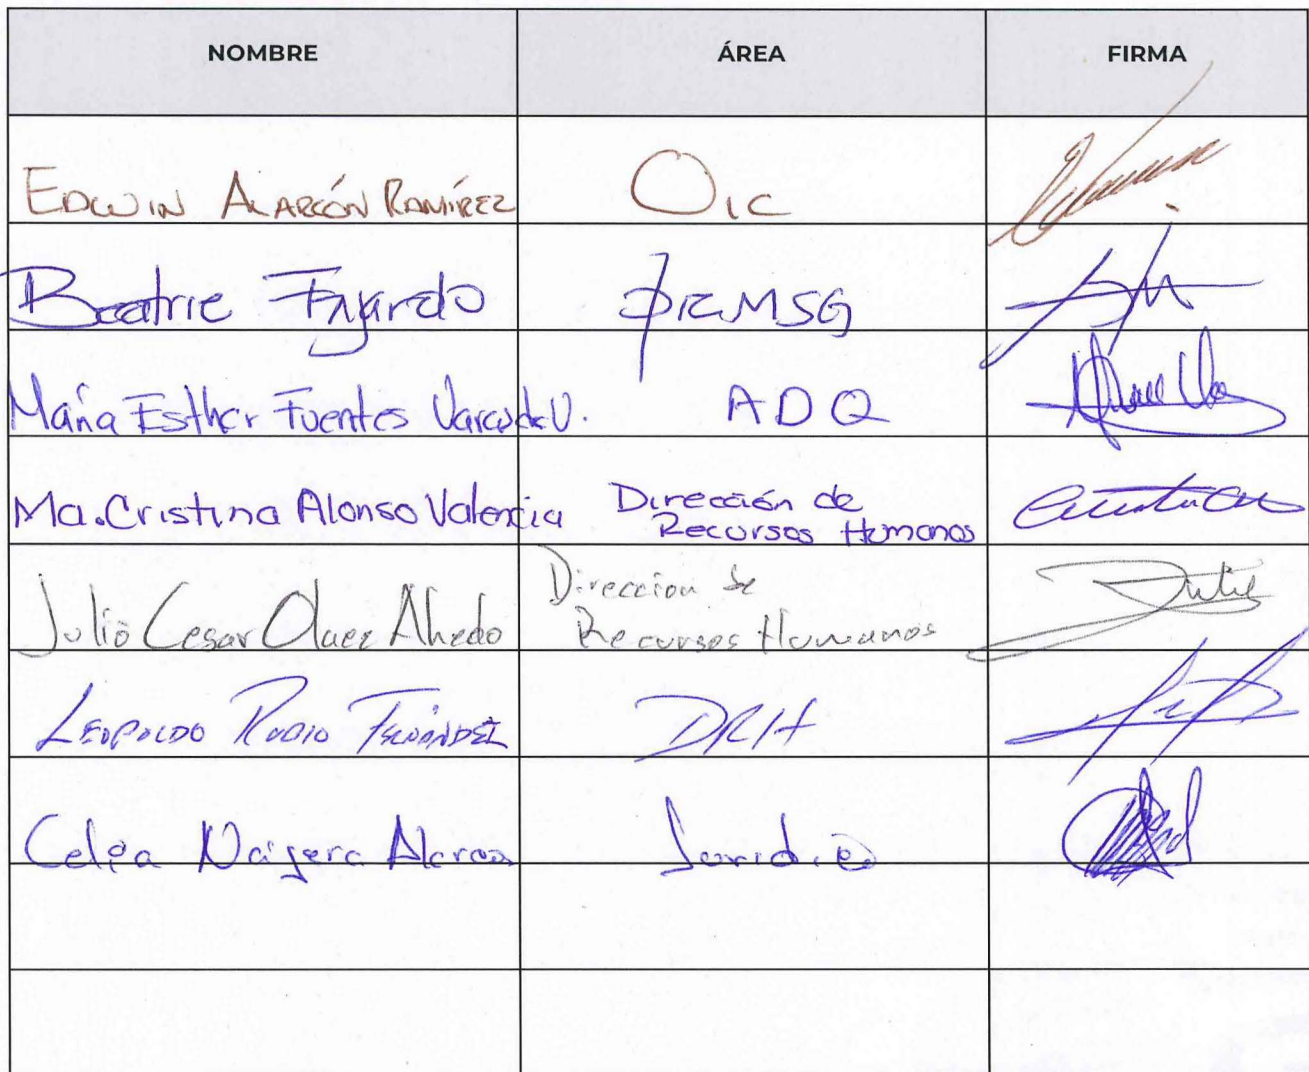 NOMBRE ÁREA FIRMA
EDWIN ALARCÓN RAMÍREZ OIC
Beatrie Fajardo DRMSG
María Esther Fuentes ADQ
Ma. Cristina Alonso Valencia Dirección de
Recursos Humanos
Julio Cesar Olaez Dirección de
Recursos Humanos
LEOPOLDO RUBIO FERNÁNDEZ DRH
Celia Naijera Alarcon Juridico